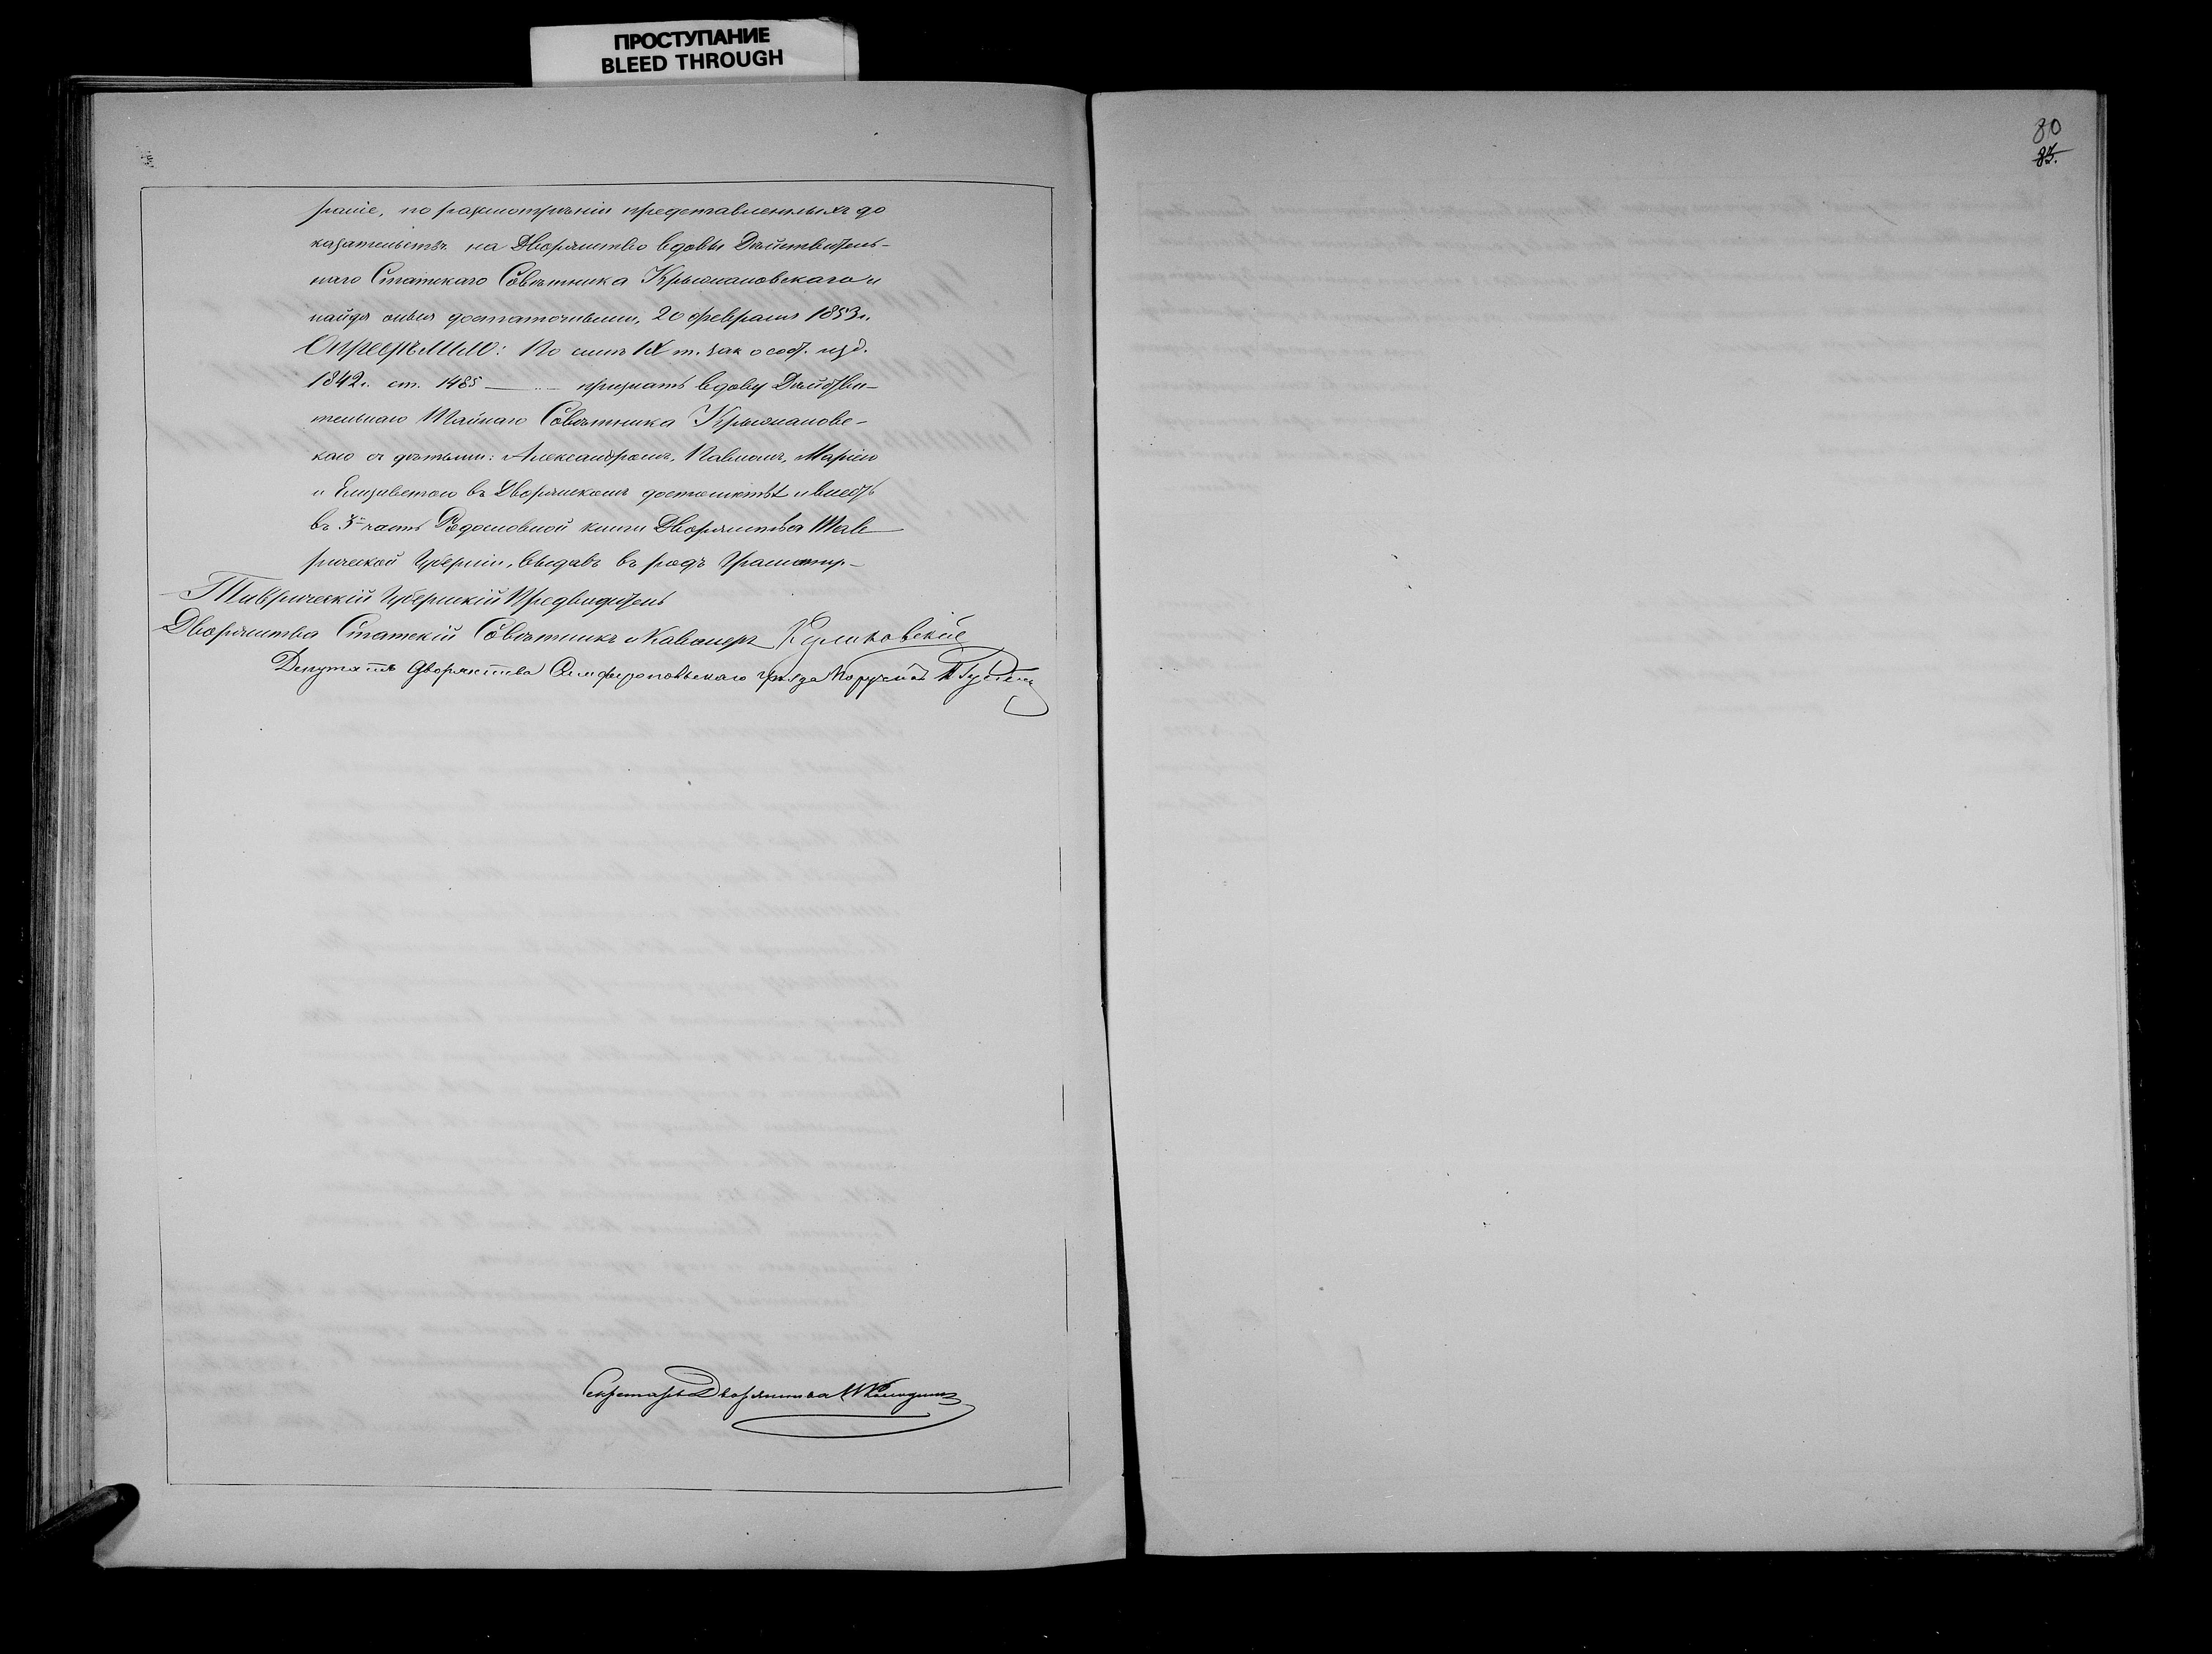 ПРОСТУПАНИЕ
BLEED THROUGH
80
83.
раніе, по разсмотрѣніи представленныхъ до
казательствъ на Дворянство вдовы Дѣйствитель-
наго Статскаго Совѣтника Крыжановскаго и
найдя оныя достаточными, 20 февраля 1853 г.
Опредѣлило: По силѣ IX т. зак о сост. изд.
1842 г. ст. 1485 — признать вдову Дѣйстви-
тельнаго Тайнаго Совѣтника Крыжановс-
каго съ дѣтьми: Александромъ, Павломъ, Маріею
и Елизаветою въ Дворянскомъ достоинствѣ и внесть
въ 3ю часть Родословной книги Дворянства Тав
рической Губерніи, выдавъ въ родъ Грамоту-
Таврическій Губернскій Предводитель
Дворянства Статскій Совѣтникъ и Кавалеръ
Депутатъ Дворянства Симферопольскаго уѣзда Поручикъ
Секретарь Дворянства